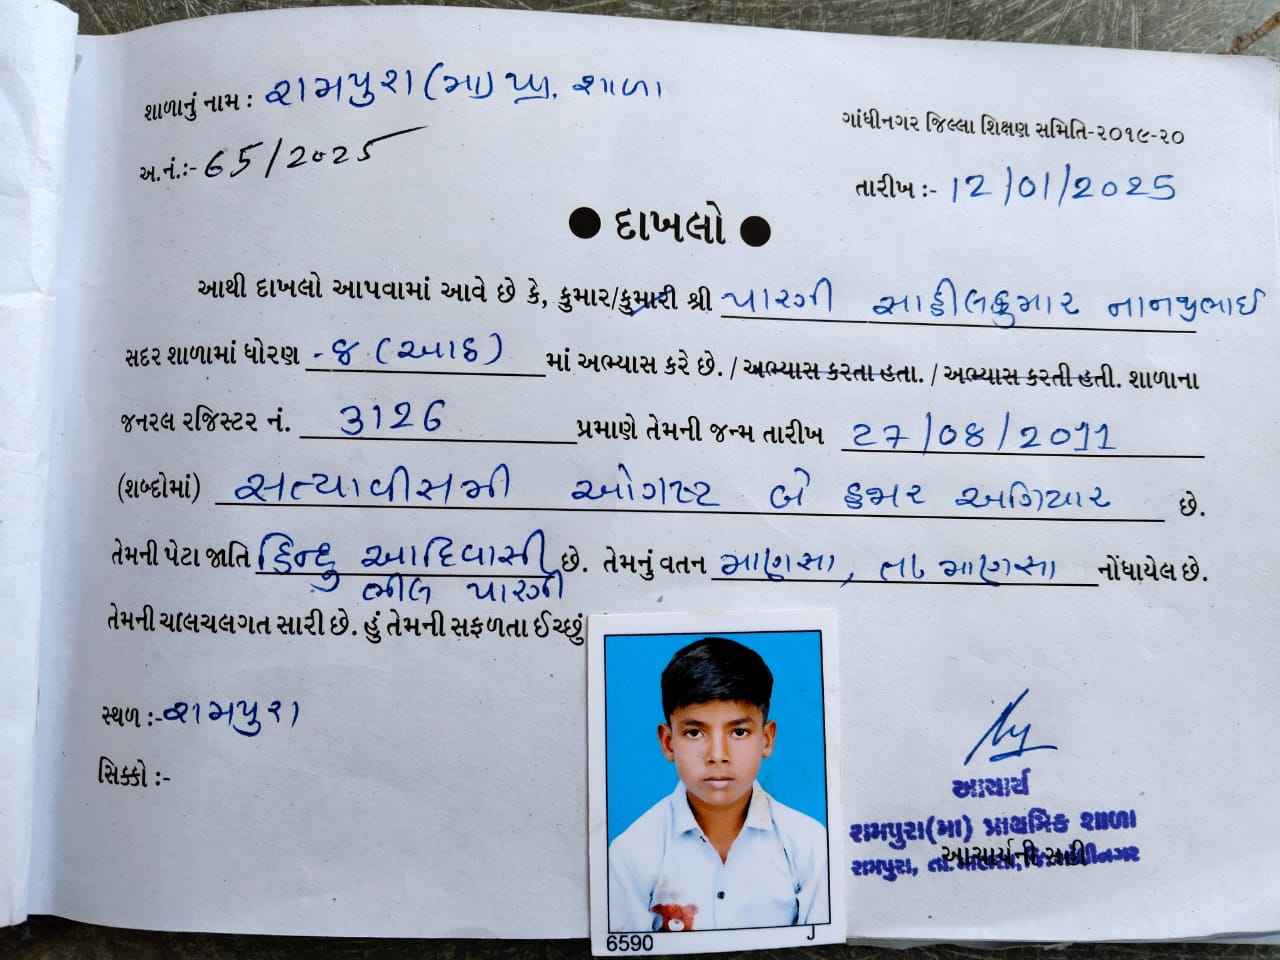 શાળાનું નામ : રામપુરા (મા) પ્રા. શાળા
ગાંધીનગર જિલ્લા શિક્ષણ સમિતિ-૨૦૧૯-૨૦
અ.નં.:- 65/2025
તારીખ :- 12/01/2025
● દાખલો ●
આથી દાખલો આપવામાં આવે છે કે, કુમાર/કુમારી શ્રી પારગી સાહીલકુમાર નાનજીભાઈ
સદર શાળામાં ધોરણ -૮ (આઠ) માં અભ્યાસ કરે છે. / અભ્યાસ કરતા હતા. / અભ્યાસ કરતી હતી. શાળાના
જનરલ રજિસ્ટર નં. 3126 પ્રમાણે તેમની જન્મ તારીખ 27/08/2011
(શબ્દોમાં) સત્યાવીસમી ઓગષ્ટ બે હજાર અગિયાર છે.
તેમની પેટા જાતિ હિન્દુ આદિવાસી છે. તેમનું વતન માણસા, તા માણસા નોંધાયેલ છે.
ભીલ પારગી
તેમની ચાલચલગત સારી છે. હું તેમની સફળતા ઈચ્છું
સ્થળ :- રામપુરા
સિક્કો :-
આચાર્ય
રામપુરા(મા) પ્રાથમિક શાળા
આચાર્યની સહી
રામપુરા,
6590
J